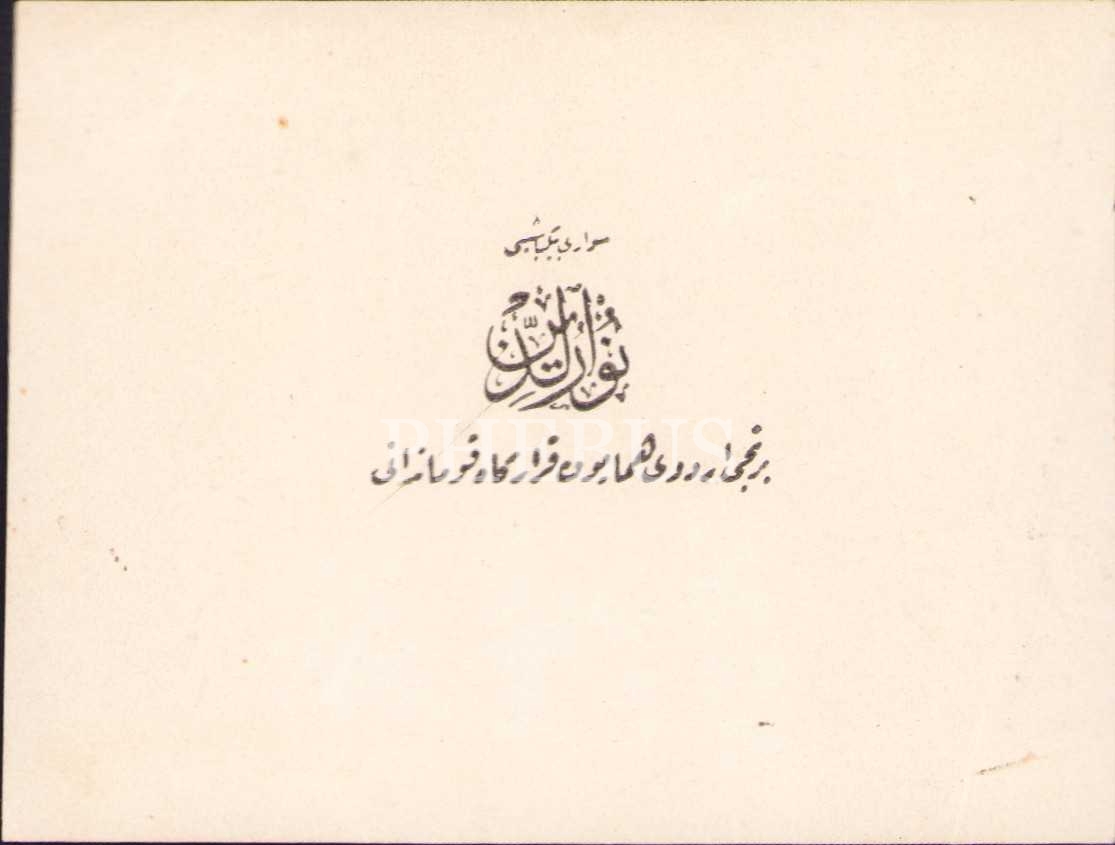 سواری بیکباشیسی
نورالدین
برنجی اردوی همایون قرارگاه قوماندانی
PHEBUS